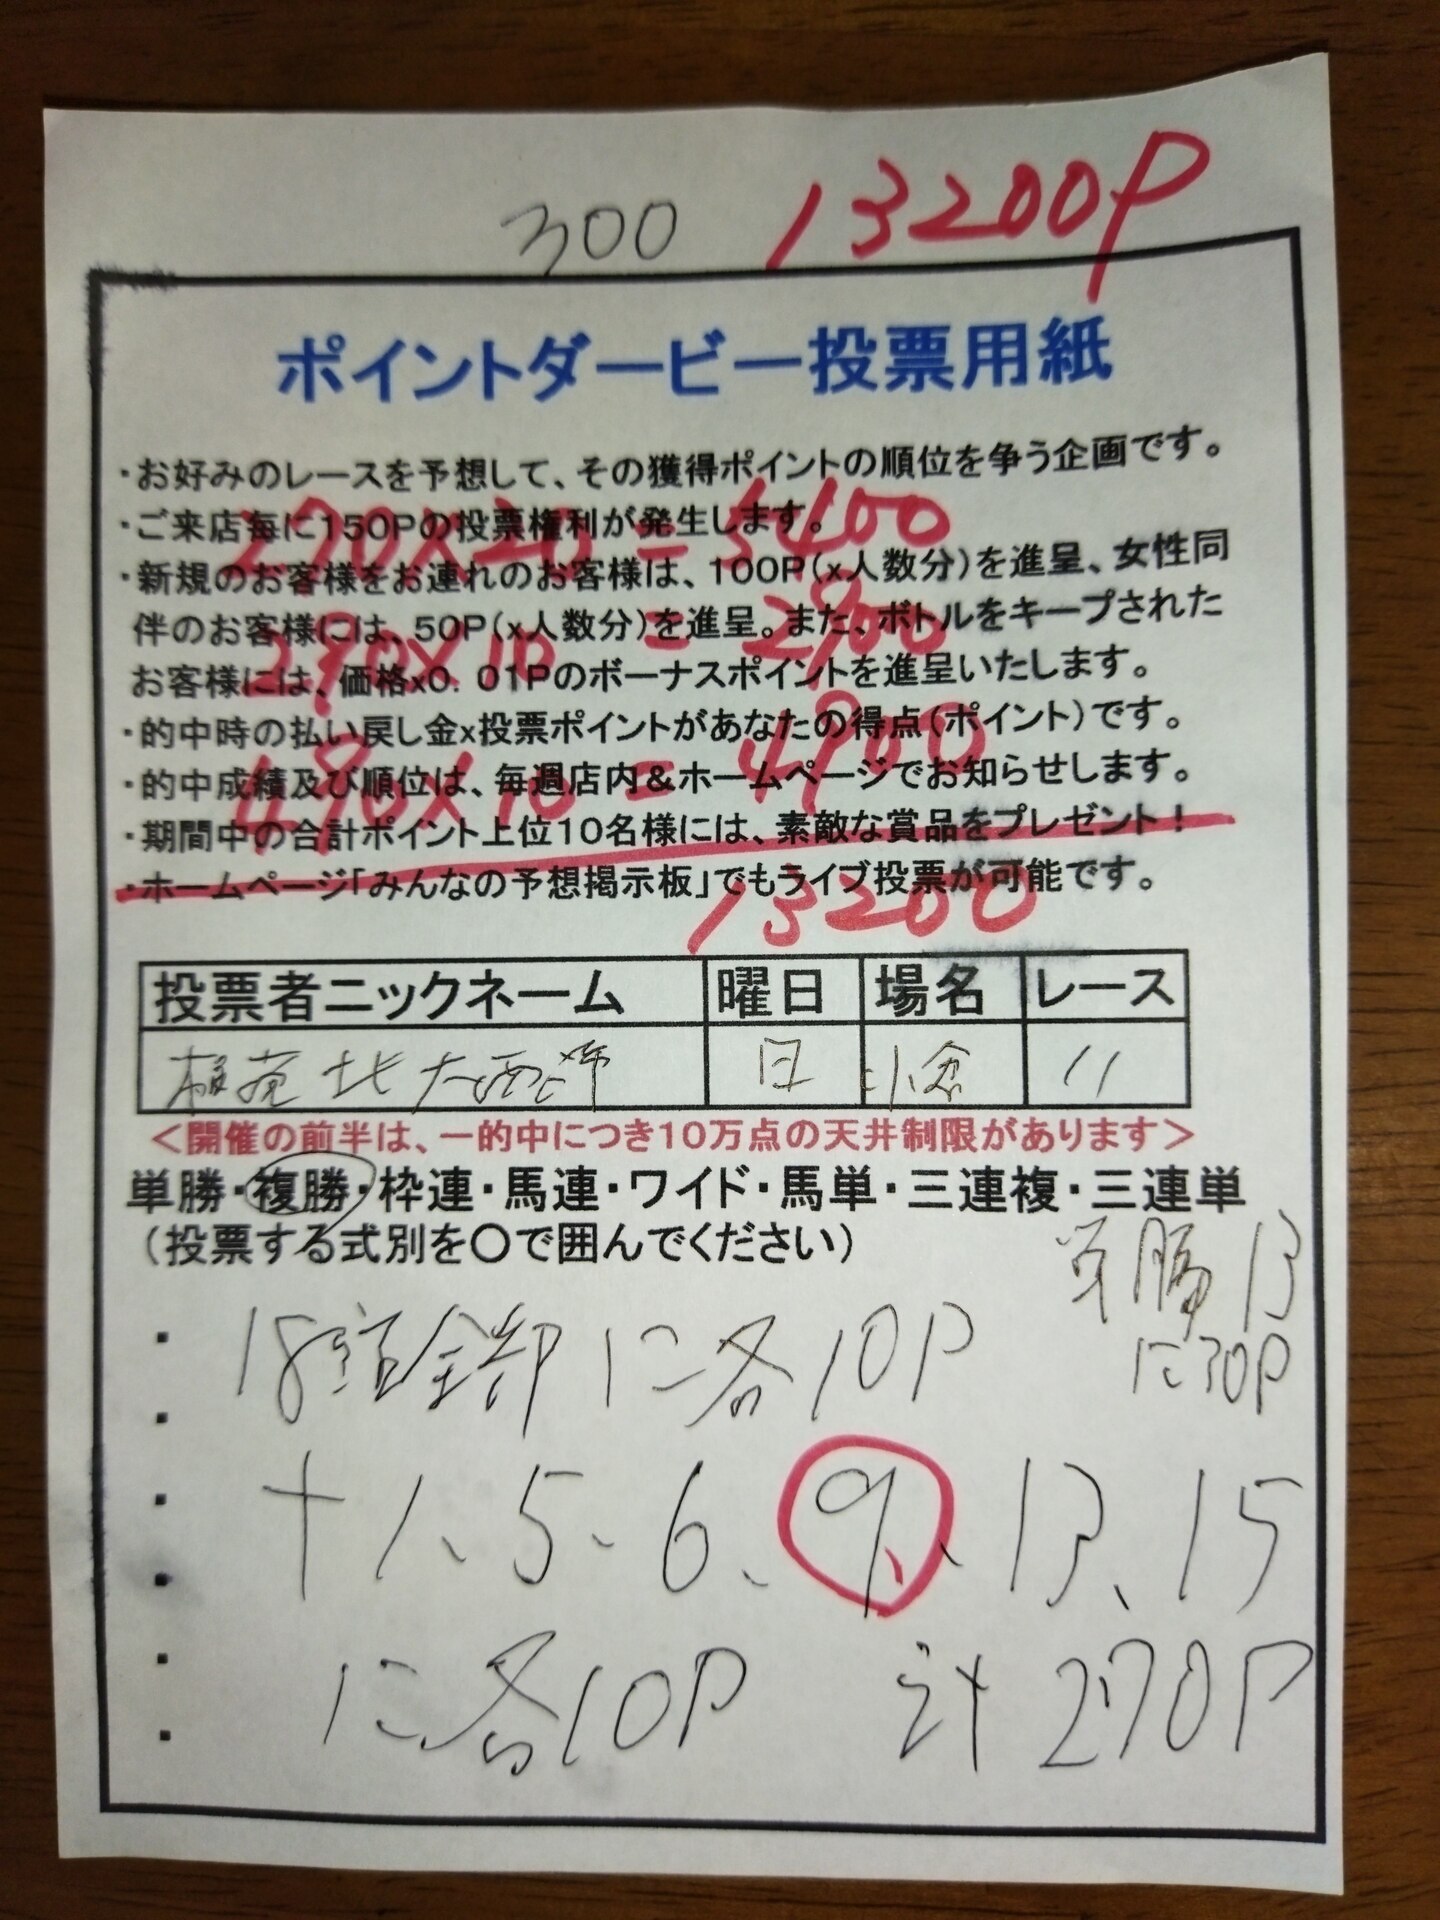 300 13200P
ポイントダービー投票用紙
・お好みのレースを予想して、その獲得ポイントの順位を争う企画です。
・ご来店毎に150Pの投票権利が発生します。
270×20=5400
・新規のお客様をお連れのお客様は、100P(x人数分)を進呈、女性同
伴のお客様には、50P(x人数分)を進呈。また、ボトルをキープされた
290×10=2900
お客様には、価格x0.01Pのボーナスポイントを進呈いたします。
・的中時の払い戻し金x投票ポイントがあなたの得点(ポイント)です。
・的中成績及び順位は、毎週店内&ホームページでお知らせします。
490×10=4900
・期間中の合計ポイント上位10名様には、素敵な賞品をプレゼント!
・ホームページ「みんなの予想掲示板」でもライブ投票が可能です。
13200
投票者ニックネーム 曜日 場名 レース
北大西洋 日 小倉 11
<開催の前半は、一的中につき10万点の天井制限があります>
単勝・複勝・枠連・馬連・ワイド・馬単・三連複・三連単
(投票する式別を〇で囲んでください)
単勝13
に30P
18頭全部に各10P
+1、5、6、9、13、15
に各10P 計270P